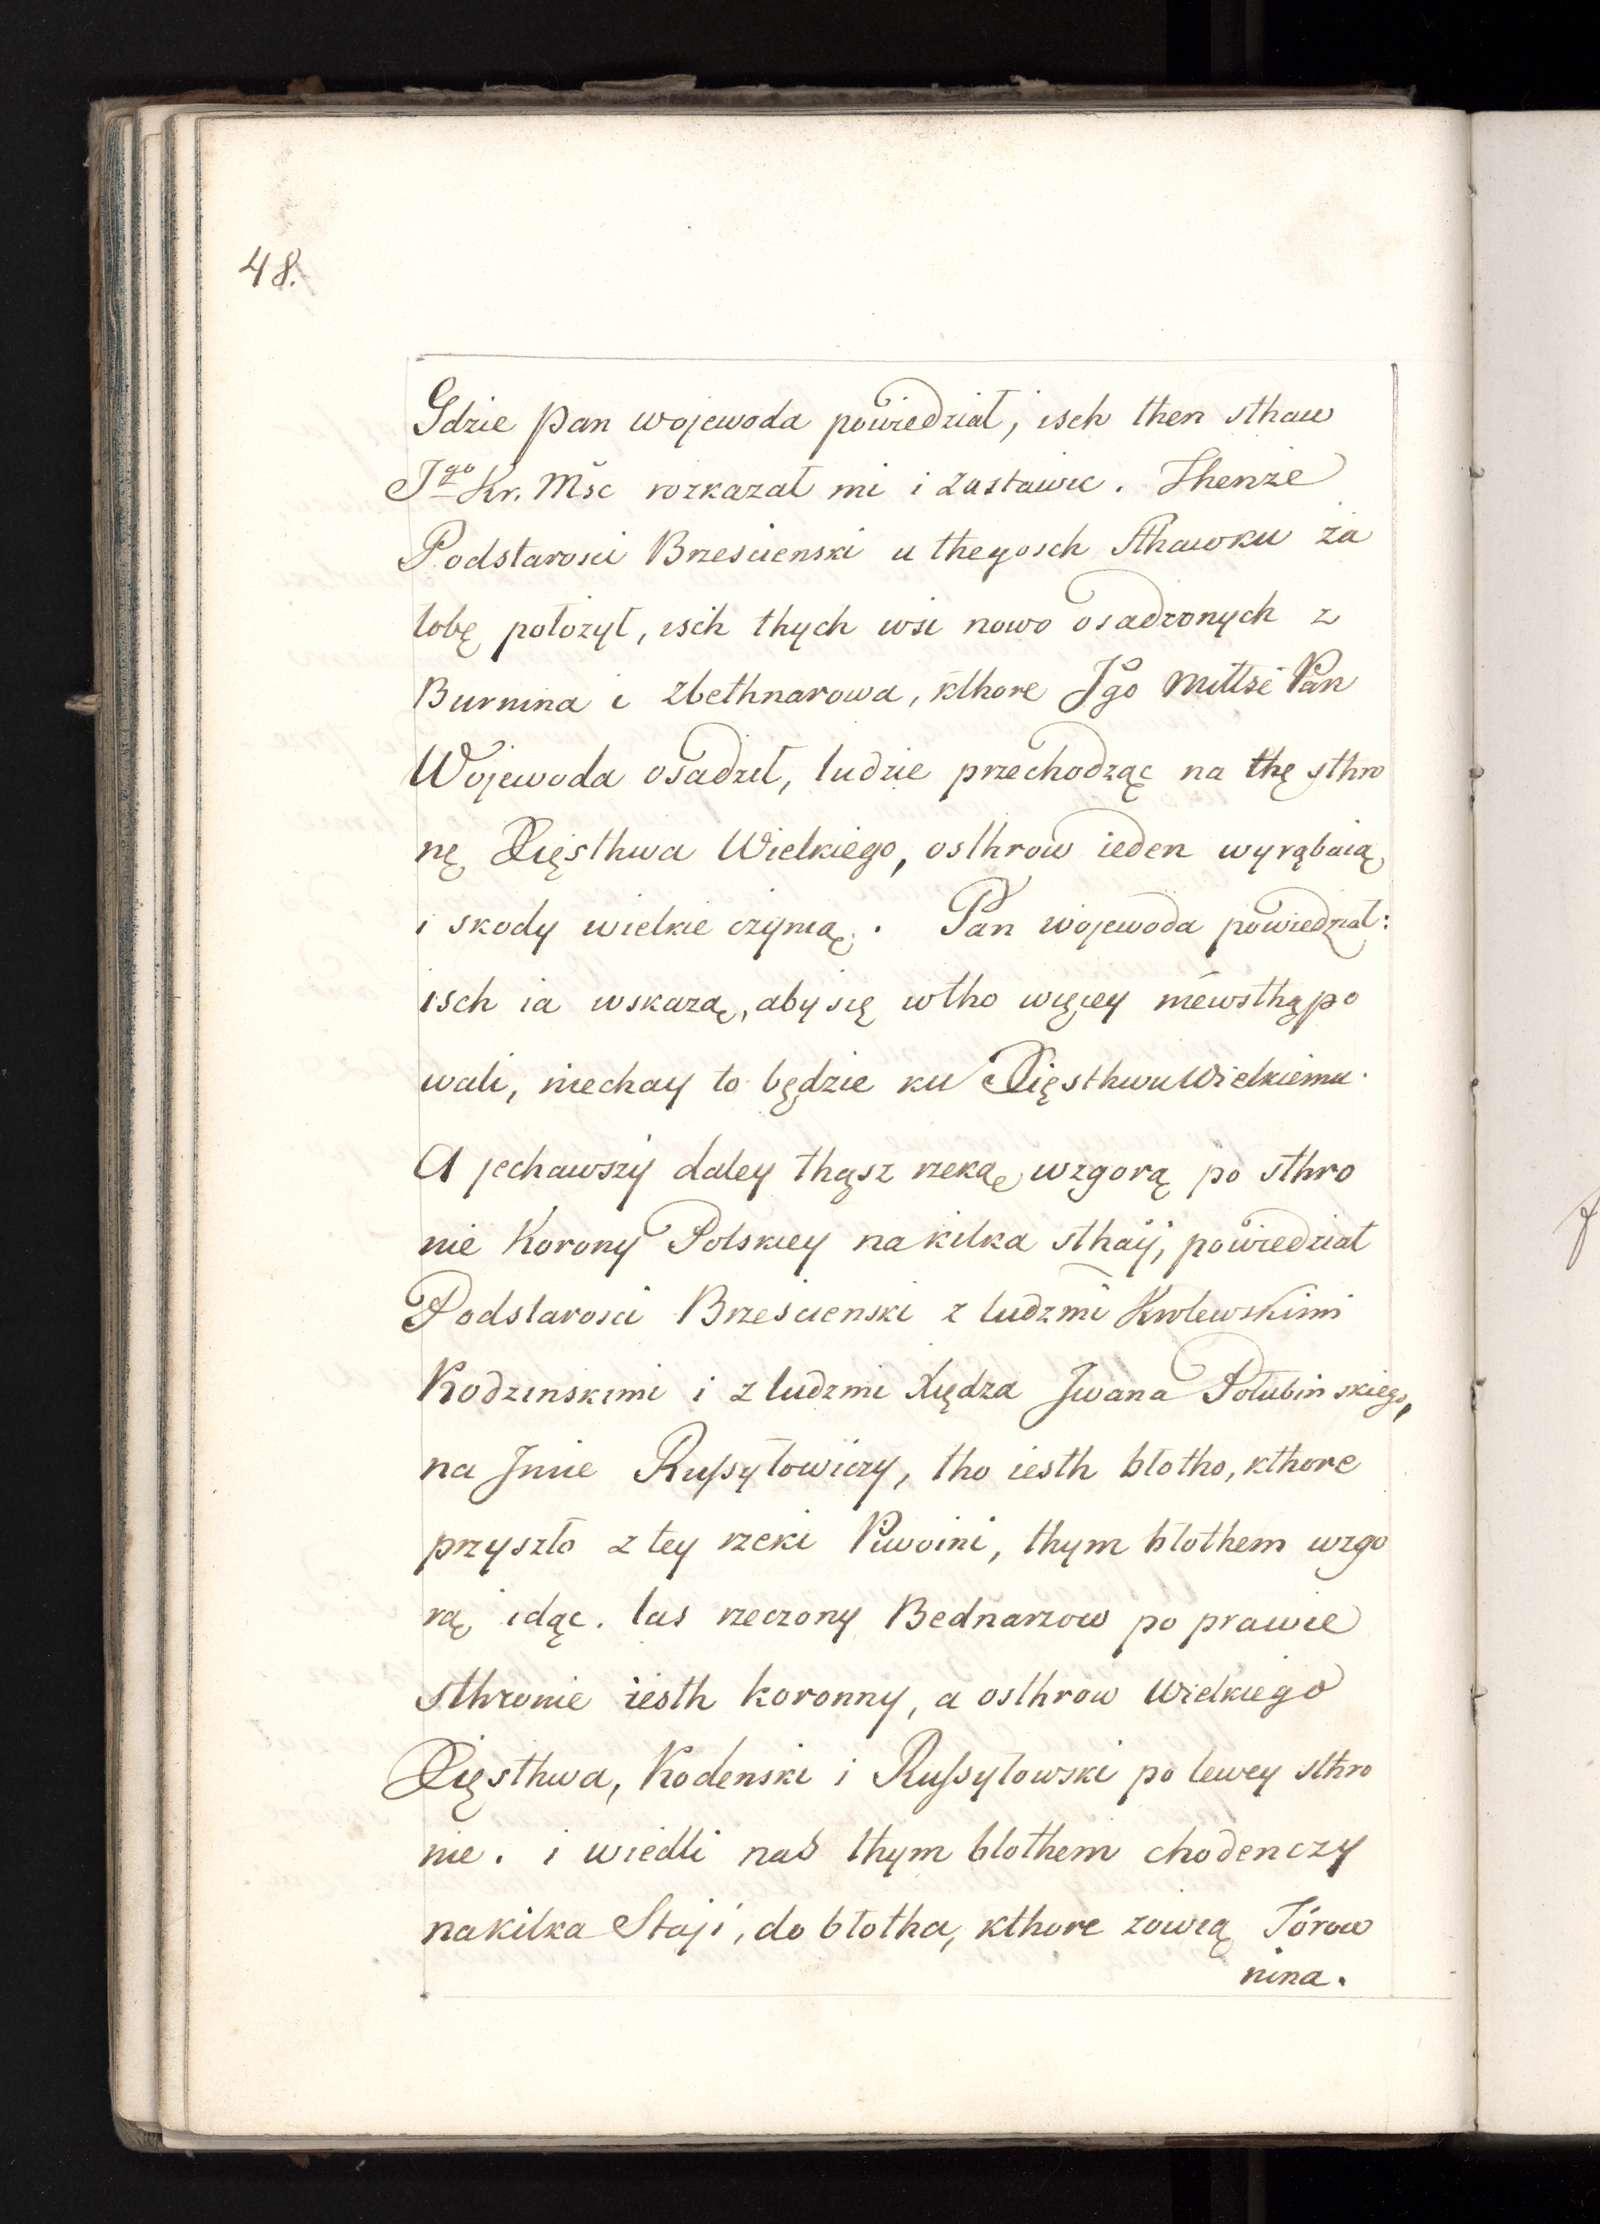 48.
Gdzie Pan wojewoda powiedział, isch then sthaw
Jgo Kr. Mśc rozkazał mi i zastawic. Thenże
Podstarosci Brzescienski u thegosch Sthawku ża
lobę położył, isch thych wsi nowo osadzonych z
Burnina i Zbethnarowa, kthore Jgo Miltsć Pan
Wojewoda osadził, ludzie przechodząc na thę sthro
nę Xięsthwa Wielkiego, osthrow ieden wyrąbaią
i skody wielkie czynią. Pan wojewoda powiedział:
isch ia wskazą, aby się wtho więcey niewsthąpo
wali, niechay to będzie ku Xięsthwu Wielkiemu.
A jechawszy daley thąsz rzeką wzgorą po sthro
nie Korony Polskiey na kilka sthaij, powiedział
Podstarosci Brzescienski z ludzmi Krolewskimi
Kodzinskimi i z ludzmi Xiędza Jwana Połubinskiego,
na Jmie Russyłowiczy, tho iesth błotho, kthore
przyszło z tey rzeki Piwoini, thym błothem wzgo
rą idąc. las rzeczony Bednarzow po prawie
sthronie iesth koronny, a osthrow Wielkiego
Xięsthwa, Kodenski i Russyłowski po lewey sthro
nie. i wiedli nas thym błothem chodenczy
na kilka Staji, do błotha, kthore zowią Tórow
nina.